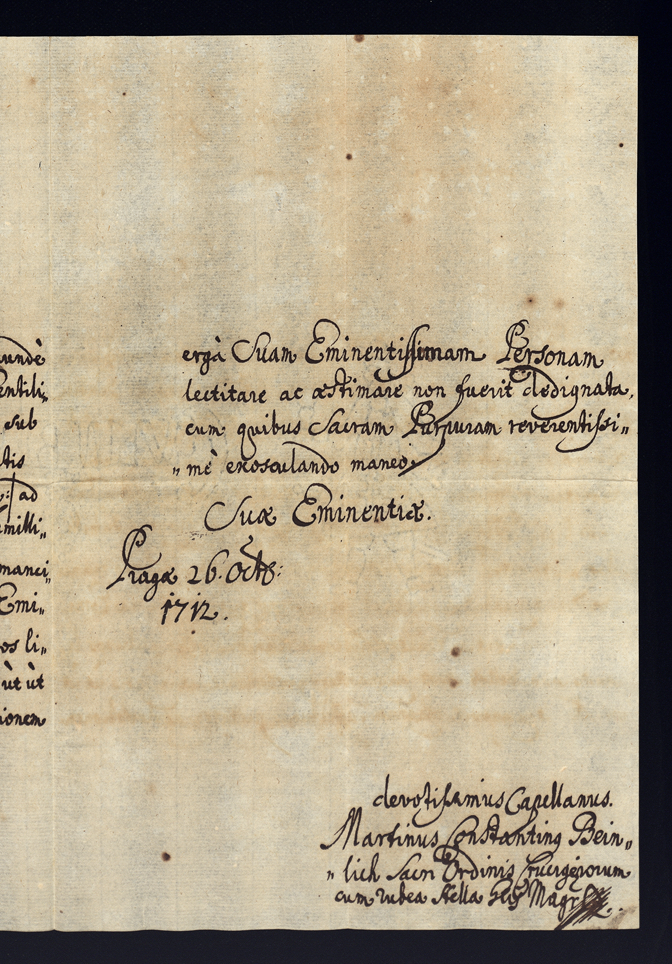 undè
entili„
sub
tis
ad
milli„
manci„
Emi„
os li„
ùt ùt
ionem
ergà Suam Eminentissimam Personam
lectitare ac æstimare non fuerit dedignata,
cum quibus Sacram Purpuram reverentissi„
„mè exosculando maneo.
Suæ Eminentiæ.
Pragæ 26. Octb:
1712.
devotissimus Capellanus.
Martinus Constantinus Bein„
„lich Sacri Ordinis Crucigerorum
cum rubea stella